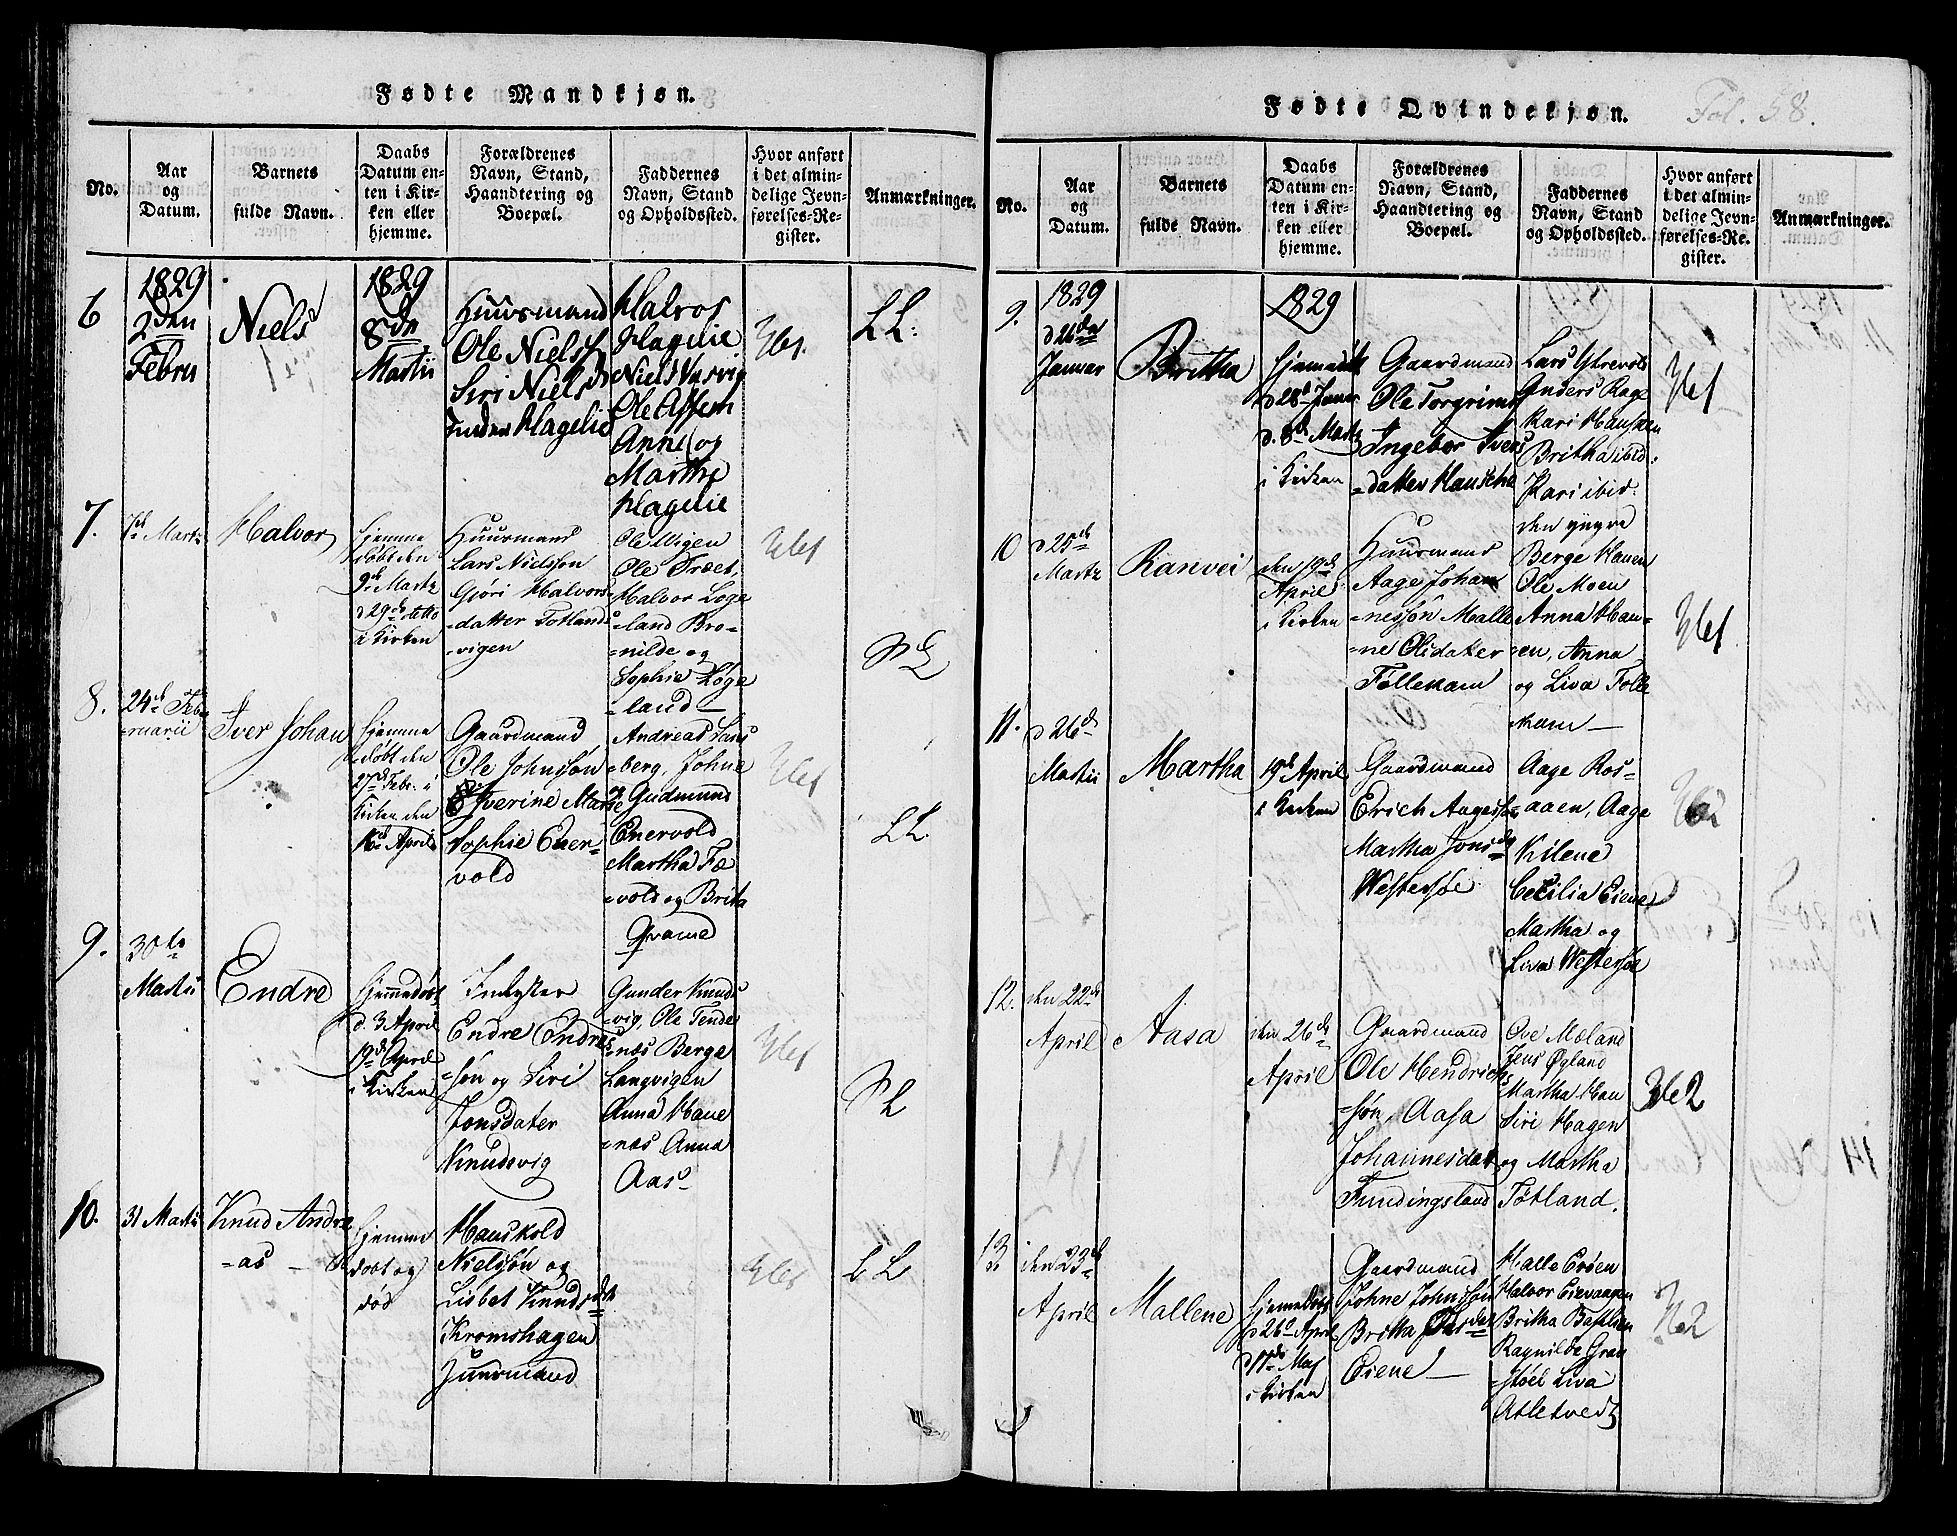 Fødte Mandkjøn.
No.
Aar
og
Datum.
Barnets
fulde Navn.
Daabs
Datum en-
ten i Kir-
ken eller
hjemme.
Forældrenes
Navn, Stand,
Haandtering og
Boepæl.
Faddernes
Navn, Stand
og Opholdssted.
Hvor anført
i det almin-
delige Jevn-
førelses-Re-
gister.
Anmærkninger.
6
1829
2den
Febru
Niels
1829
8de
Martii
Huusmand
Ole Niels
Siri Niels
Hagelie
Halvor
Hagelie
Niels
Ole
Anne og
Marthe
Hagelie
LL:
7.
7de Marti
Halvor
hjemme
døbt den
9de Marti
d 29de detto
i Kirken
Huusmand
Lars Nielssen
Gjøri Halvors
=datter Totlands
=vigen
Ole Wigen
Ole Træet
Halvor Løge
=land Bro=
=nilde og
Sophie Løge
=land
8.
24de Feb
=ruarii
Iver Johan
hjemme
døbt den
27de Febr. i
Kirken den
April
Gaardmand
Ole Johnssøn
Iverine Marie
Sophie Ener=
vold
Andreas Lans
=berg, Johne
Gudmund
Enervold
Martha Fæ
=vold og Brita
Qvame
LL.
9.
30te
Martii
Endre
hjemmedøbt
d. 3 April
19de April
i Kirken
Inderster
Endre Endres
=søn og Siri
Jonsdater
Knudsvig
Gunder Knuds
=vig, Ole Tende
=næs Berge
Langvigen
Anna Haue
=næs Anna
Aas
10.
31 Martii
Knud Andre
=as
hjemme
døbt og
død
Hauskold
Nielssøn og
Lisbet Knudsdt
Kromshagen
Huusmand
LL
Fødte Qvindekjøn.
Fol. 58.
No.
Aar
og
Datum.
Barnets
fulde Navn.
Daabs
Datum en-
ten i Kir-
ken eller
hjemme.
Forældrenes
Navn, Stand,
Haandtering og
Boepæl.
Faddernes
Navn, Stand
og Opholdssted.
Hvor anført
i det almin-
delige Jevn-
førelses-Re-
gister.
Anmærkninger.
9.
1829
d 26de
Januar
Britha
1829
d 28de Januar
d. 8de Marti
i Kirken
Gaardmand
Ole Torgrims
Ingebor Ivers
=datter Hauskne
Lars
Anders Rage
Kari Hausken
Britha ibid:
Kari ibid.
10
d 25de
Marti
Ranvei
den 19de
April
i Kirken
Huusmand
Aage Johan
=nessøn Malle
=ne Olidater
Tølleham
den yngre
Berge Hauen
Ole Moen
Anna Hau=
=en, Anna
og Liva Tølle
ham
11.
d 26de
Martii
Martha
19de April
i Kirken
Gaardmand
Erich Aagessøn
Martha Jonsd
Westersøe
Aage Ros=
aaen, Aage
Kilene
Cecilia Eiene
Martha og
Liva Westersøe
12.
den 22de
April
Aasa
den 26de
April
Gaardmand
Ole Hendrichs
=søn, Aasa
Johannesdat
Fundingsland
Ove Mæland
Jens Øgland
Martha Hau
Siri Hagen
og Martha
Totland.
362
13
den 23de
April
Mallene
hjemmedøbt
d 26de April
d 17de Maj
i Kirken
Gaardmand
Johne Johnssøn
Britta
Eiene
Halle Erøen
Halvor Eievaagen
Britha
Ragnilda Gran
=støel Liva
Atletvedt